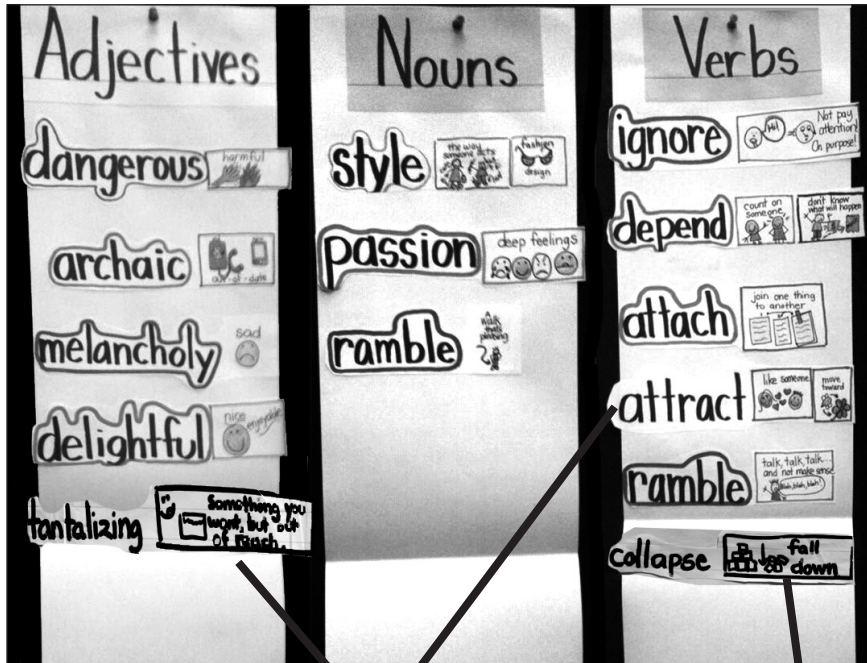 Adjectives
dangerous
harmful
archaic
out-of-date
melancholy
sad
delightful
nice
enjoyable
tantalizing
Something you
want, but out
of reach.
Nouns
style
the way
someone acts
fashion
design
passion
deep feelings
ramble
A
walk
that's
Verbs
ignore
Hi!
Not pay
attention!
On purpose!
depend
count on
someone
don't know
what will happen
attach
join one thing
to another
attract
like someone
move
toward
ramble
talk, talk, talk
and not make sense
Blah, blah, blah!
collapse
fall
down